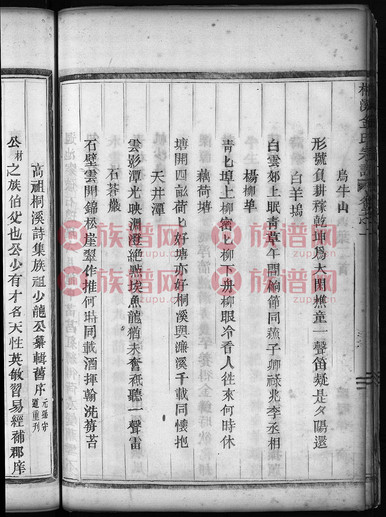 烏牛山
形號負耕稼乾坤爲大閑樵童一聲笛疑是夕陽還
白羊塢
白雲郊上眠青草午間齝節同蘇子卿祿兆李丞相
楊柳埠
青匕埠上柳密匕柳下舟柳眼冷看人往來何時休
藕荷塘
塘開四畝荷匕好塘亦好桐溪與濂溪千載同懷抱
天井潭
雲影潭光映淵澄絶點埃魚龍猶未奮秪聽一聲雷
石菩巖
石壁雲開錦杈崖翠作推何時同載酒揮翰洗莓苔
高祖桐溪詩集族祖少龍公纂輯舊序
公之族伯父也公少有才名天性英敏習易經補郡庠
族谱网
zupu.cn